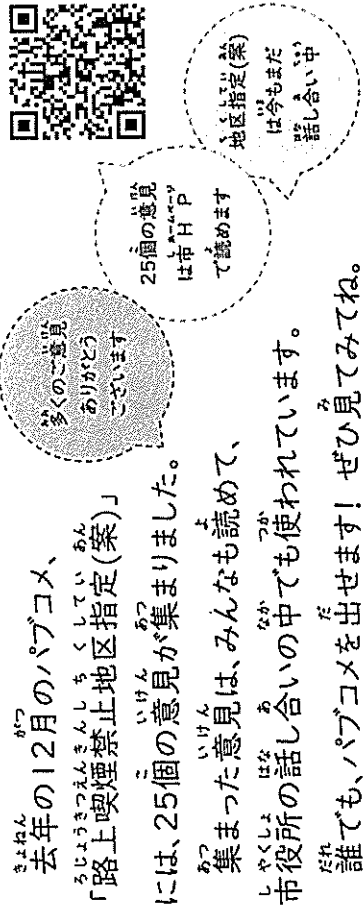 去年の12月のパブコメ、
「路上喫煙禁止地区指定(案)」
には、25個の意見が集まりました。
集まった意見は、みんなも読めて、
市役所の話し合いの中でも使われています。
誰でも、パブコメを出せます! ぜひ見てみてね。
多くのご意見
ありがとう
ございます
25個の意見
は市HP
で読めます
地区指定(案)
は今もまだ
話し合い中